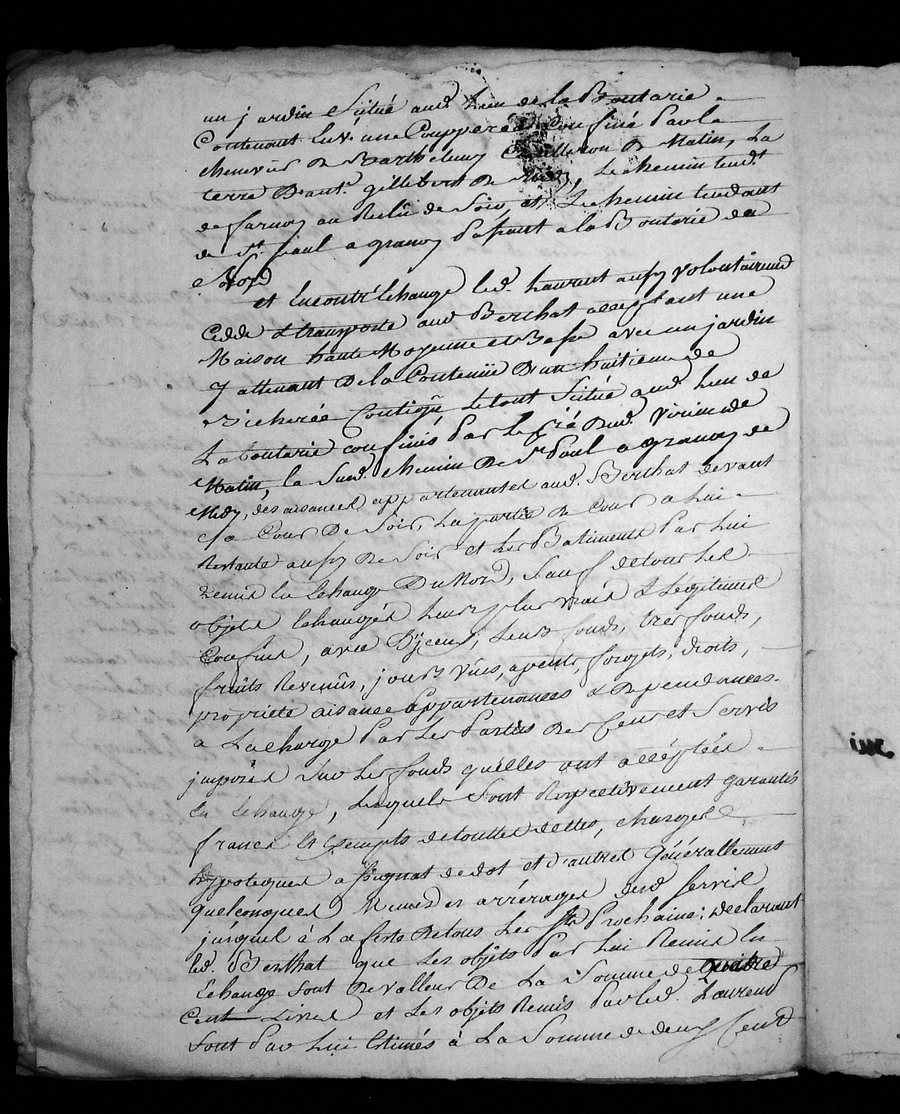 un jardin Scitué aud. Lieu de la Boutarie
Contenant Env. une Coupperée Confiné par le
chenevier de Barthelemy de Matin, La
terre D'ant. gillebert de midy, Le chemin tend.t
de farnay au Reclu de Soir, et Le chemin tendant
de St. paul a granay passant a la Boutarie de
Nord
et En contr'Echange led. Laurent aussy volontairemt
Cedde & transporte aud. Berthat acceptant une
Maison haute Moyenne et Basse avec un jardin
y attenant De la Contenüe D'un huitieme de
Bicherée Contigu Le tout Scitué aud. Lieu de
La boutarie confinés Par le pré dud. de
Matin, la Susd. chemin De St. Paul a granay de
Midy, des aisances appartenantes aud. Berthat devant
Sa Cour De Soir, La partie de Cour a Lui
Restante aussy De Soir et Les Batiments Par Lui
remis En Echange Du Nord, Sauf de tous Les
objets Echangés Leurs plus vrais & Legitimes
Confins, avec D'jceux, Leurs fonds, tres fonds,
fruits Revenûs, jours vûes, agents, forjets, droits,
propriete aisances appartenances & Dependances
a La charge Par Les Parties Des Cens et Servis
jmposés Sur Les fonds qu'elles ont acceptées
En Echange, Lesquels Sont Respectivement garantis
francs & Exempts de touttes dettes, charges
hypoteques assignat de dot et d'autres Générallement
quelconques Memes des arrérages desd. Servis
jusques à La feste De tous Les Sts Prochaine; Declarant
led. Berthat que Les objets Par Lui Remis En
Echange Sont De valleur De La Somme de quatre
Cent Livres et Les objets Remis Par led. Laurent
Sont Par Lui Estimés à La Somme de deux Cent